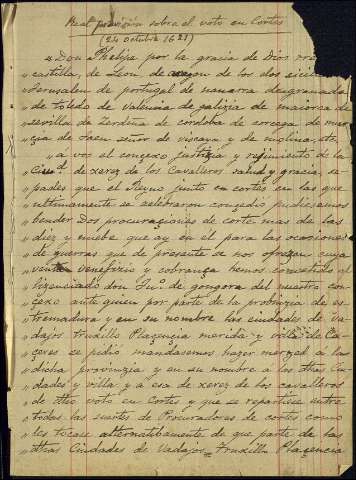 Real provisión sobre el voto en Cortes
(24 octubre 1621)
"Don Phelipe por la gracia de Dios
castilla, de Leon, de aragon de las dos
Jerusalem de portugal de navarra de granada
de toledo de Valencia de galizia de maiorca de
sevilla de Zerdeña de cordoba de corcega de mur
çia de Jaen señor de viscaya y de molina etc
"a vos el conçexo Justiçia y rejimiento de la
Ciuᵈ. de xerez de los Cavalleros salud y graçia, se
pades que el Reyno junto en cortes en las que
ultimamente se zelibraron conçedio pudiesemos
bender Dos procuraçiones de cortes mas de las
diez y nuebe que ay en el para las ocasiones
de guerras que de presente se nos ofrezen cuya
venta benefizio y cobrança hemos cometido al
lizenciado don Juᵒ de gongora del nuestro con
çexo ante quien por parte de la probinzia de es
tremadura y en su nombre las ciudades de Va
dajoz truxillo Plaçençia merida y villa de Ca
çeres se pedio mandasemos hazer merçed a la
dicha provinzia y en su nombre a las dhas Ciu
dades y villa y a esa de xerez de los caballeros
de dho voto en Cortes y que se repartiese entre
todas las suertes de Procuradores de cortes como
les tocase alternatibamente de que parte de las
dhas Ciudades de Vadajoz Truxillo Plaçencia